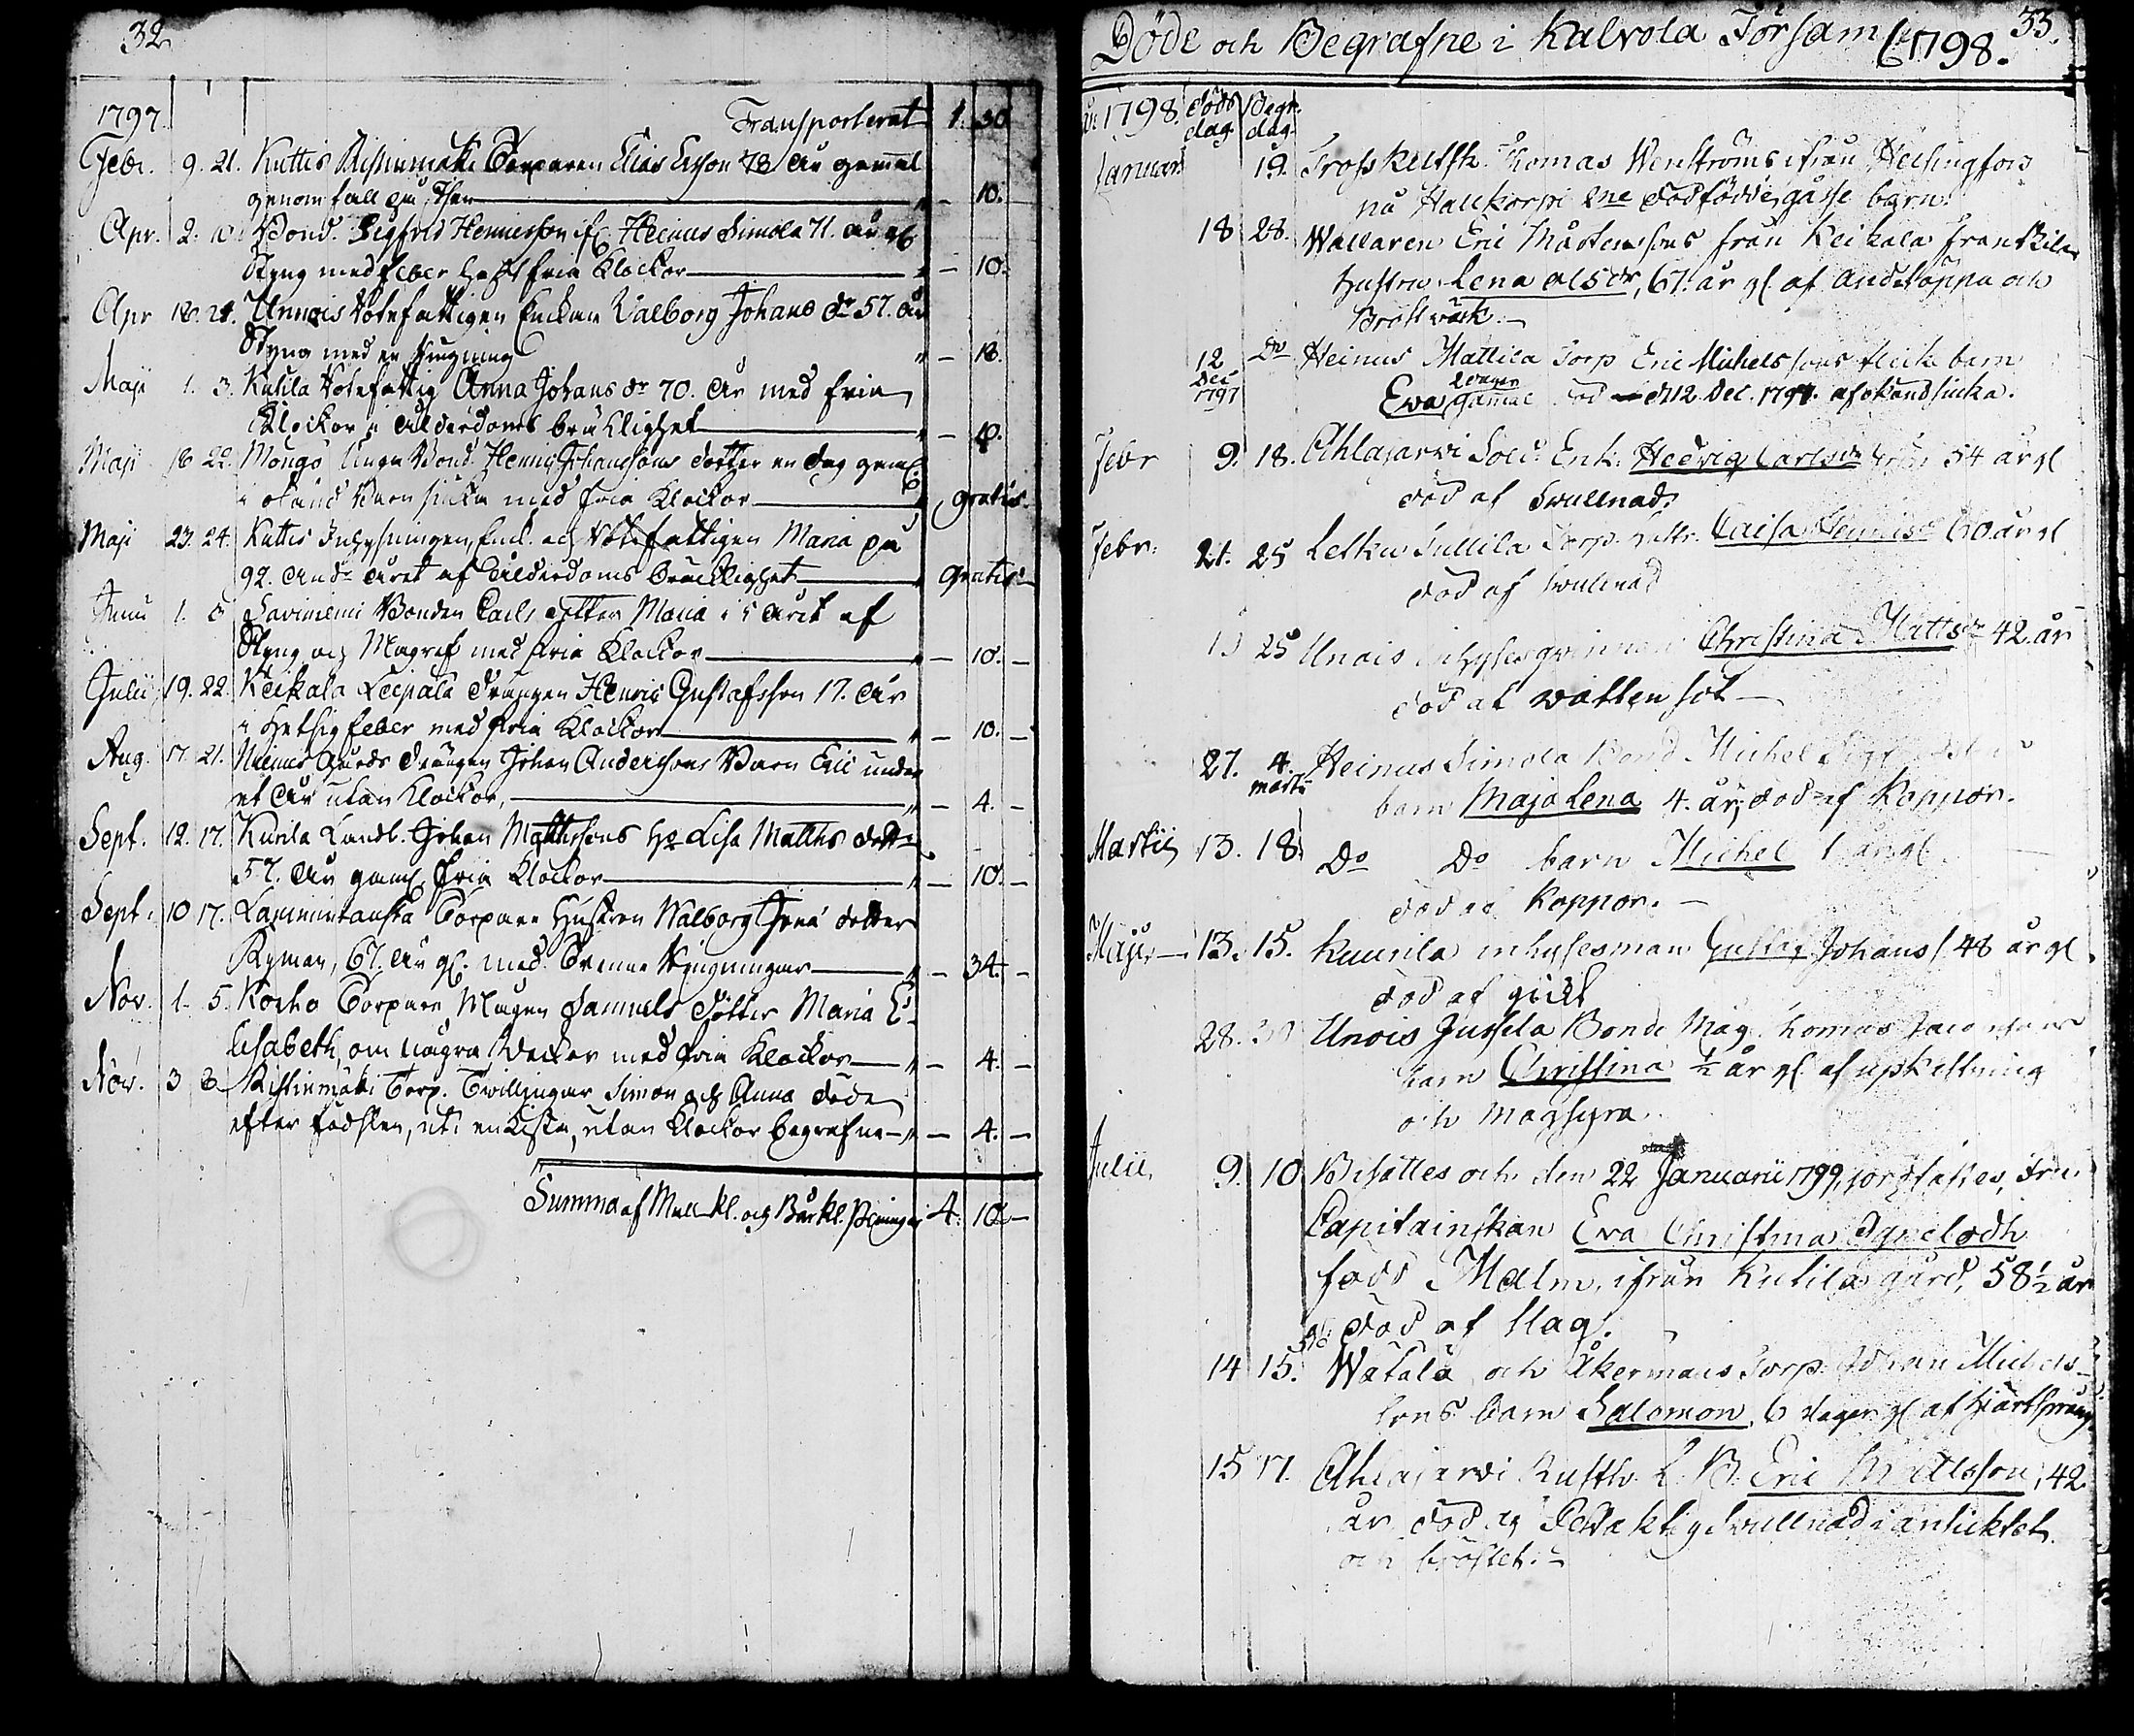 32
1797. Transporterat 1. 30
Febr. 9. 21. Kuttis Ristinmäki Torparen Elias Ersson 78 år gammal
genom fall på Isen — 10.
Apr. 2. Bond. Sigfrid Hennersson if. Heinus Simola 71. år gl
Styng med feber haft fria Klockor — 10.
Apr 18. 21. Unnois Rotefattigen Enckan Valborg Johans dr 57. år
Styng med en Ringning — 18.
Maji 1. 3. Kutila Rotefattig Anna Johans dr 70. år med fria
Klockor i ålderdoms bräcklighet — 10.
Maji 18 22. Mongo Unga Bond. Henric Johanssons dotter en dag gaml
i okänd Barn siuka med fria Klockor — gratis.
Maji 23. 24. Kuttis Inhysningen, Enk. och Rotefattigen Maria på
92. andra året af ålderdoms bräcklighet — gratis
Junii 1. Saviniemi Bonden Carls dotter Maria i 5 året af
Styng och Magref med fria Klockor — 10. —
Julii 19. 22. Keikala Leipälä drängen Henric Gustafsson 17. år
i hetsig feber med fria Klockor — 10. —
Aug. 17. 21. Heinus Gårds drängen Johan Anderssons Barn Eric under
et år utan Klockor, — 4. —
Sept. 12. 17. Kurila Landb. Johan Matthssons Ho Lisa Matths dotter
57. år gaml. fria Klockor — 10. —
Sept. 10 17. Lamminkauska Torpare Hustrun Walborg dotter
Ryman, 67. år gl. med Tvenne Ringningar — 34. —
Nov. 1. 5. Korho Torpare Mågen Samuels dotter Maria E-
lisabeth, om några Veckor med fria Klockor — 4. —
Nov. 3 Ristinmäki Torp. Twillingar Simon och Anna döde
efter födslen, uti en kista, utan Klockor begrafne — 4. —
Summa af Mull kl. och Bår kl. Penningar 4: 10 —
Döde och Begrafne i Kalvola Församl 1798. 33.
1798. döds dag. Begr. dag.
Januari 19. Trosskutsk. Thomas Wenströms ifrån Helsingfors
på Hallkorpi 2ne dödfödde gåsse barn.
18 28. Wallaren Eric Mårtenssons från Keikala Franskila
hustru Lena Olsdr, 67. år gl. af andtäppa och
Bröst värk. —
12 Dec 1797 Do Heinus Mattila Torp Eric Michelssons flick barn
Ewa 2 dagar gammal död d 12 Dec. 1797. af okänd siuka.
Febr 9. 18. Ahlajärvi Sold. Enk. Hedvig Carlsdr 54 år gl
död af Swullnad.
Febr: 21. 25 Letku Sullila Torp. hustr. Caisa 60 år gl
död af swulnad
25 Unois inhyses qvinnan Christina Mattsdr 42. år
död af watten sot —
27. 4. Martii Heinus Simola Bond Michel
barn Maja Lena 4. år, död af Koppor.
Martii 13. 18. Do Do barn Michel 1 år gl.
död af Koppor. —
Maji — 13. 15. Kuurila inhysesman Gustaf Johans 48 år gl.
död af gikt
28. 30 Unois Jussila Bonde Måg. Thomas
barn Christina ½ år gl. af upkastning
och magsyra.
Julii. 9. 10 Bisattes och den 22 Januarii 1799, jordfästes, Fru
Capitainskan Eva Christina Agnelodh
född Malm, ifrån Kutila gård, 58 ½ år
gl. död af slag.
14 15. Watala och Åkermans Torp. Johan Michels-
sons barn Salomon, 6 dagar gl. af Hjertsprång.
15 17. Ahlajärvi Rusth. L. B. Eric Mattsson, 42
år död af swullnad i ansicktet
och bröstet. —